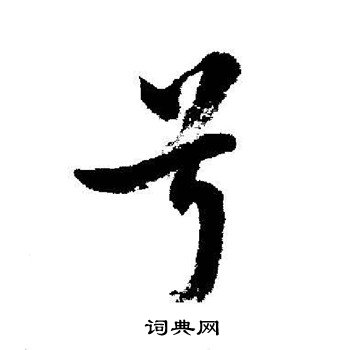 号
词典网